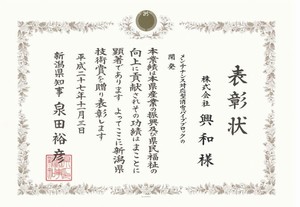 表彰状
株式会社 興和 様
メンテナンス対応型消雪パイプブロックの
開発
本業績は本県産業の振興及び県民福祉の
向上に貢献されその功績はまことに
顕著であります よってここに新潟県
技術賞を贈り表彰します
平成二十七年十一月三日
新潟県知事 泉田裕彦